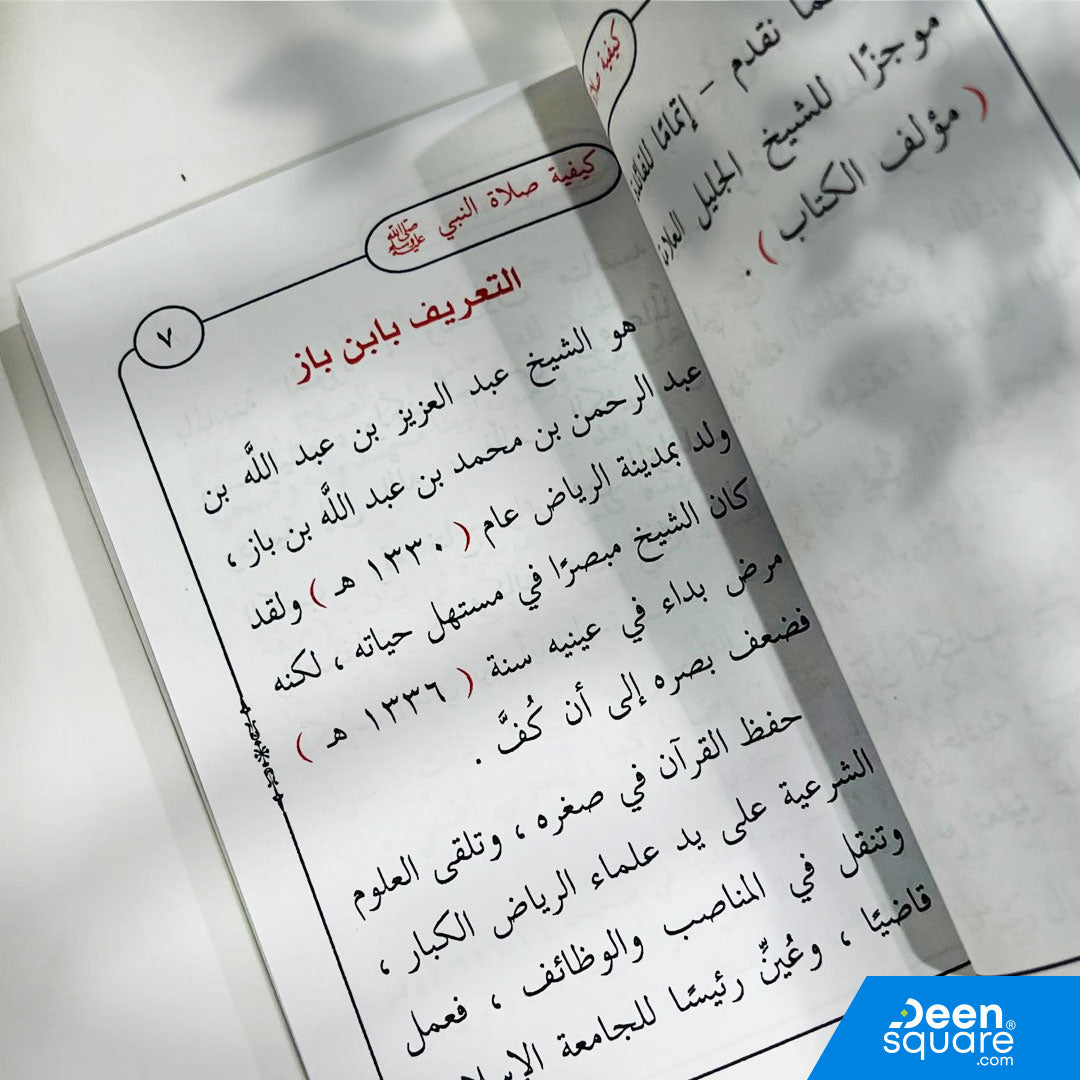 كيفية صلا
ما نقدم - إتمامًا للفائدة
موجزًا للشيخ الجليل العلا
( مؤلف الكتاب ) .
كيفية صلاة النبي ﷺ
٧
التعريف بابن باز
هو الشيخ عبد العزيز بن عبد اللَّه بن
عبد الرحمن بن محمد بن عبد اللَّه بن باز ،
ولد بمدينة الرياض عام ( ١٣٣٠ هـ ) ولقد
كان الشيخ مبصرًا في مستهل حياته ، لكنه
مرض بداء في عينيه سنة ( ١٣٣٦ هـ )
فضعف بصره إلى أن كُفَّ .
حفظ القرآن في صغره ، وتلقى العلوم
الشرعية على يد علماء الرياض الكبار ،
وتنقل في المناصب والوظائف ، فعمل
قاضيًا ، وعُيِّنَ رئيسًا للجامعة
Deen®
square
.com